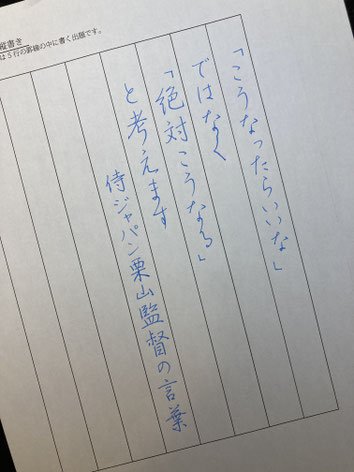 縦書き
は5行の罫線の中に書く出題です。
「こうなったらいいな」
ではなく
「絶対こうなる」
と考えます
侍ジャパン栗山監督の言葉